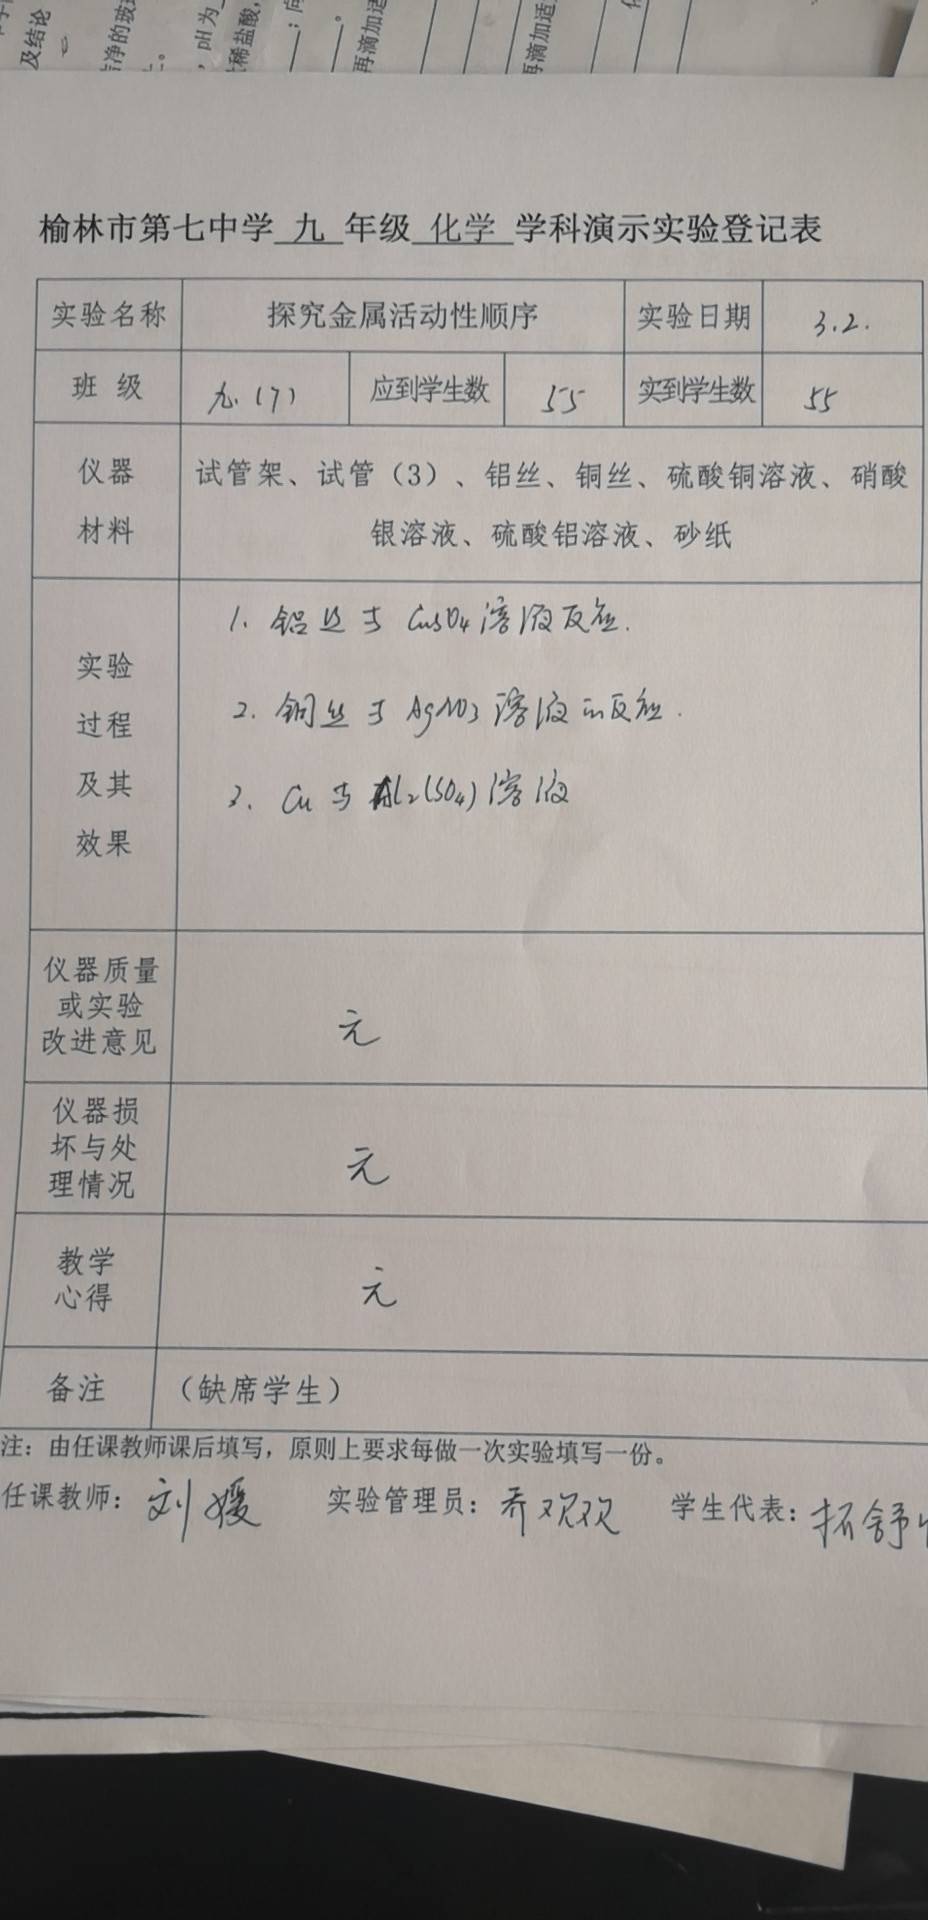 及结论
洁净的玻
，pH为
稀盐酸，
再滴加适
再滴加适
榆林市第七中学 九 年级 化学 学科演示实验登记表
实验名称 探究金属活动性顺序 实验日期 3.2.
班 级 九.(7) 应到学生数 55 实到学生数 55
仪器 试管架、试管（3）、铝丝、铜丝、硫酸铜溶液、硝酸
材料 银溶液、硫酸铝溶液、砂纸
1. 铝丝与 CuSO4溶液反应.
实验
过程 2. 铜丝与 AgNO3 溶液的反应.
及其 3. Cu 与 Al2(SO4) 溶液
效果
仪器质量
或实验 元
改进意见
仪器损
坏与处 元
理情况
教学
心得 元
备注 （缺席学生）
注：由任课教师课后填写，原则上要求每做一次实验填写一份。
任课教师：刘媛 实验管理员：乔欢欢 学生代表：拓舒